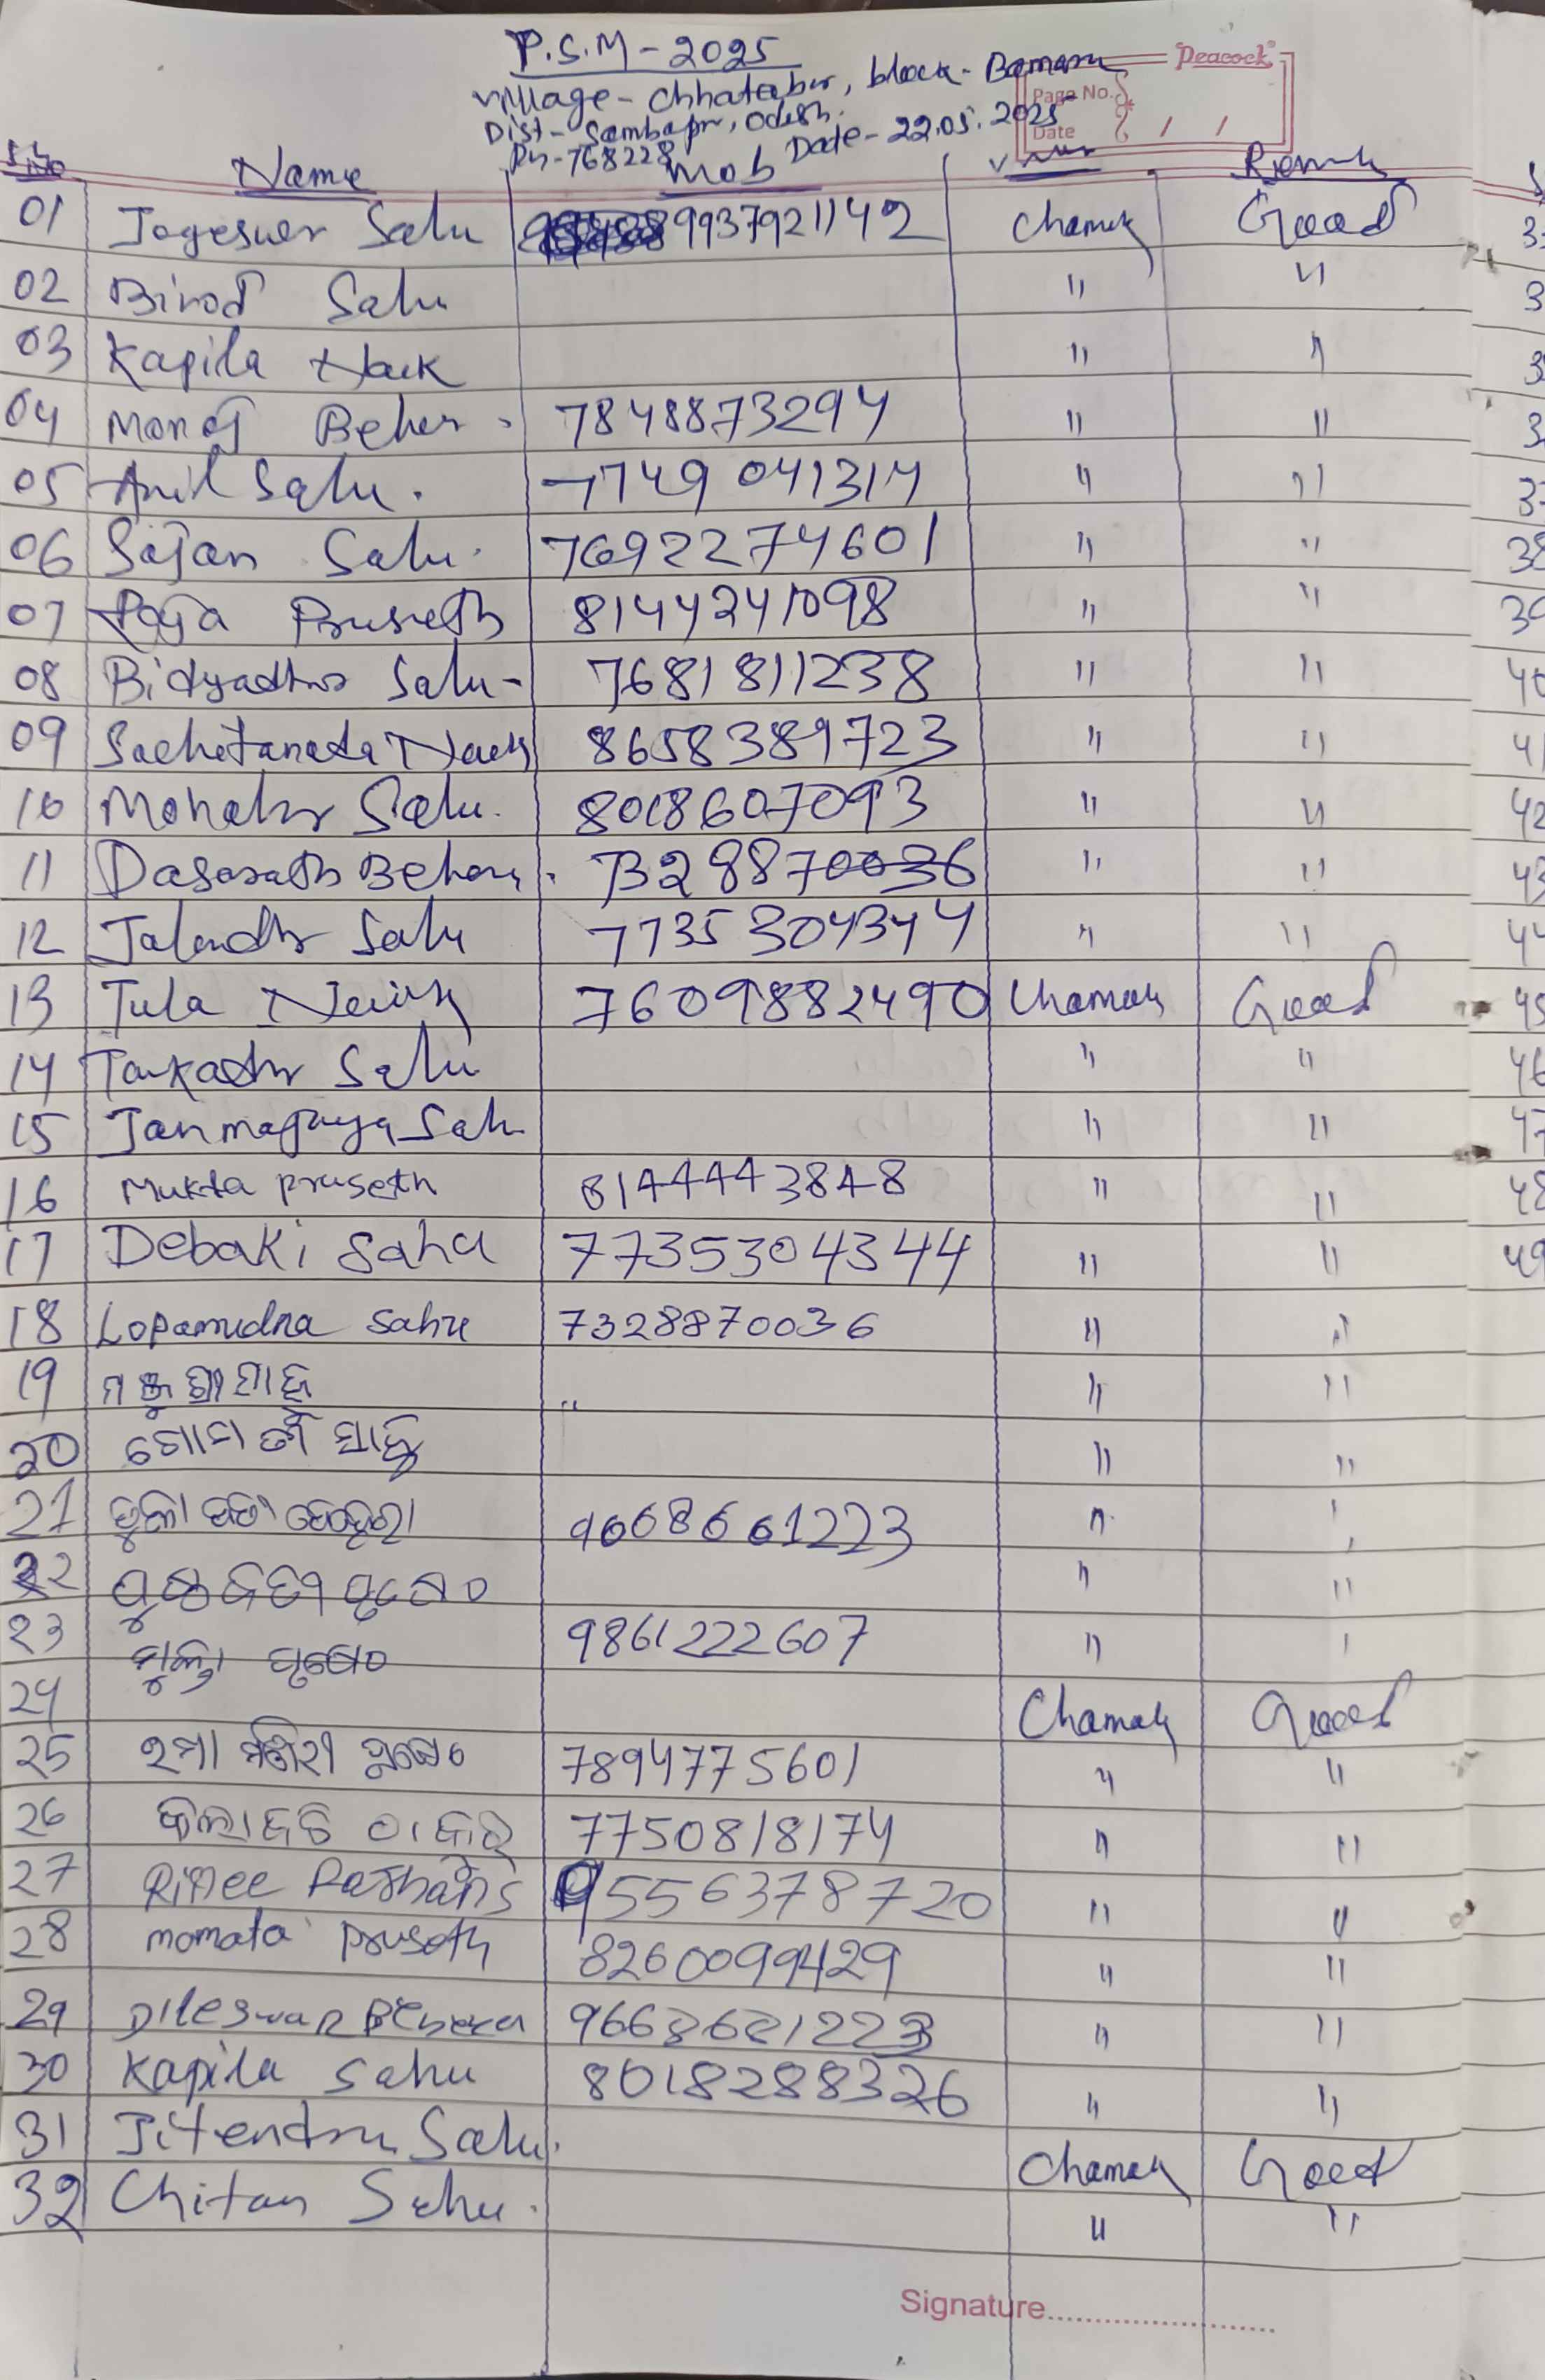 P.S.M - 2025
Village - Chhatabar, block - Bamara
Dist - Sambapr, Odish.
Pin - 768228 Date - 22.05.2025
Peacock
Page No.
Date / /
S.L No Name Mob Remark
01 Jogeswer Sahu 9937921142 Chamak Good
02 Birod Sahu " "
03 Kapila Naik " "
04 Manoj Beher. 7848873294 " "
05 Anil Sahu. 7749041314 " "
06 Sajan Sahu. 7692274601 " "
07 Pruseth 8144241098 " "
08 Bidyadhar Sahu - 7681811238 " "
09 Sachitanada Naik 8658389723 " "
10 Mohahr Sahu. 8018607093 " "
11 Dasarath Behera. 7328870036 " "
12 Jalandhr Sahu 7735304344 " "
13 Tula Naik 7609882490 Chamak Good
14 Tankadhr Sahu " "
15 Janmajuya Sahu " "
16 Mukta pruseth 8144443848 " "
17 Debaki Sahu 7735304344 " "
18 Lopamudra sahu 7328870036 " "
19 ସାହୁ " " "
20 ଗୋମତୀ ସାହୁ " "
21 ବେହେରା 9668661223 " "
22 ପୃଷେଠ " "
23 ମୁକ୍ତା ପୃଷେଠ 9861222607 " "
24 Chamak Good
25 ପୃଷେଠ 7894775601 " "
26 7750818174 " "
27 95563778720 " "
28 momata pruseth 8260099429 " "
29 Dileswar Behera " "
30 Kapila Sahu 8018288326 " "
31 Jitendra Sahu. Chamak Good
32 Chitan Sahu. " "
Signature